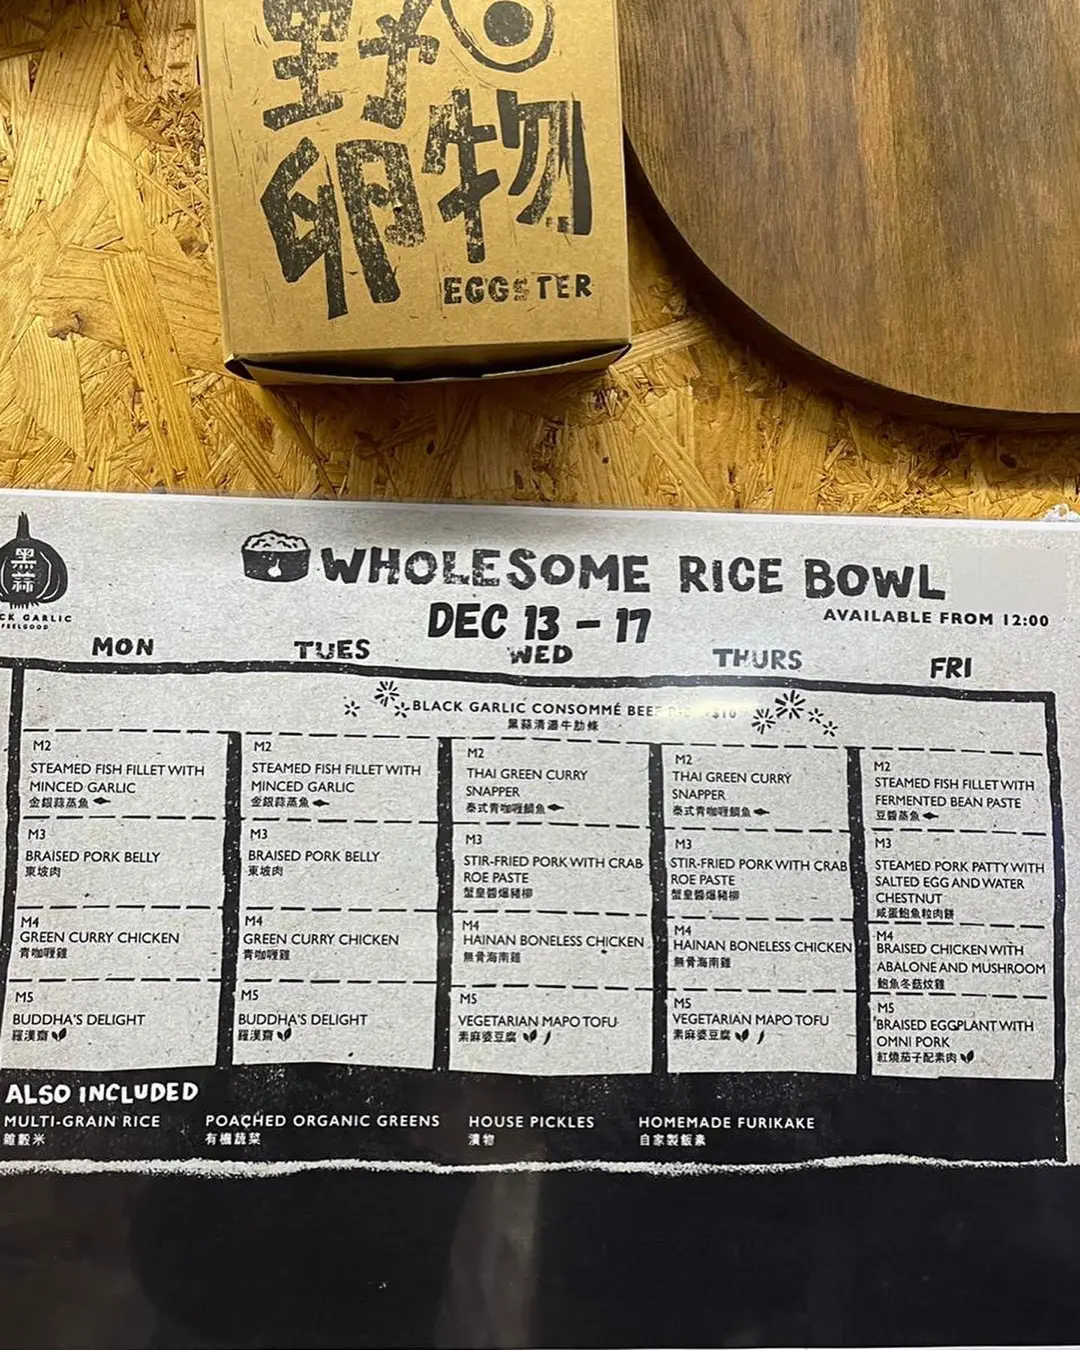 野
卵物
EGGSTER
黑
蒜
CK GARLIC
FEELGOOD
WHOLESOME RICE BOWL
DEC 13 - 17
AVAILABLE FROM 12:00
MON
TUES
WED
THURS
FRI
BLACK GARLIC CONSOMMÉ BEEF +$10
黑蒜清湯牛肋條
M2
STEAMED FISH FILLET WITH
MINCED GARLIC
金銀蒜蒸魚
M2
STEAMED FISH FILLET WITH
MINCED GARLIC
金銀蒜蒸魚
M2
THAI GREEN CURRY
SNAPPER
泰式青咖喱鯛魚
M2
THAI GREEN CURRY
SNAPPER
泰式青咖喱鯛魚
M2
STEAMED FISH FILLET WITH
FERMENTED BEAN PASTE
豆醬蒸魚
M3
BRAISED PORK BELLY
東坡肉
M3
BRAISED PORK BELLY
東坡肉
M3
STIR-FRIED PORK WITH CRAB
ROE PASTE
蟹皇醬爆豬柳
M3
STIR-FRIED PORK WITH CRAB
ROE PASTE
蟹皇醬爆豬柳
M3
STEAMED PORK PATTY WITH
SALTED EGG AND WATER
CHESTNUT
咸蛋鮑魚粒肉餅
M4
GREEN CURRY CHICKEN
青咖喱雞
M4
GREEN CURRY CHICKEN
青咖喱雞
M4
HAINAN BONELESS CHICKEN
無骨海南雞
M4
HAINAN BONELESS CHICKEN
無骨海南雞
M4
BRAISED CHICKEN WITH
ABALONE AND MUSHROOM
鮑魚冬菇炆雞
M5
BUDDHA'S DELIGHT
羅漢齋
M5
BUDDHA'S DELIGHT
羅漢齋
M5
VEGETARIAN MAPO TOFU
素麻婆豆腐
M5
VEGETARIAN MAPO TOFU
素麻婆豆腐
M5
BRAISED EGGPLANT WITH
OMNI PORK
紅燒茄子配素肉
ALSO INCLUDED
MULTI-GRAIN RICE
雜穀米
POACHED ORGANIC GREENS
有機蔬菜
HOUSE PICKLES
漬物
HOMEMADE FURIKAKE
自家製飯素